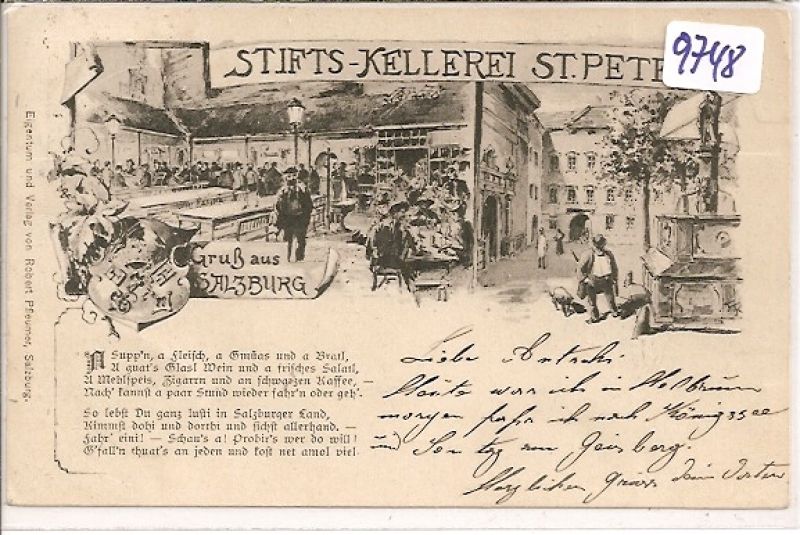 STIFTS-KELLEREI ST. PETE
9748
Eigentum und Verlag von Robert Pfleumer, Salzburg.
Gruß aus
SALZBURG
A Supp'n, a Fleisch, a Gmüas und a Bratl,
A guat's Glasl Wein und a frisches Salatl,
A Mehlspeis, Zigarrn und an schwarzen Kaffee, —
Nach' kannst a paar Stund wieder fahr'n oder geh'.
So lebst Du ganz lusti in Salzburger Land,
Kimmst dohi und dorthi und sichst allerhand. —
Fahr' eini! — Schau's a! Probir's wer do will!
G'fall'n thuat's an jeden und kost net amol viel.
Liebe
Heute war ich in Hellbrunn
morgen fahr ich nach Königssee
und Sontag am Geisberg.
Herzlichen Gruss dein